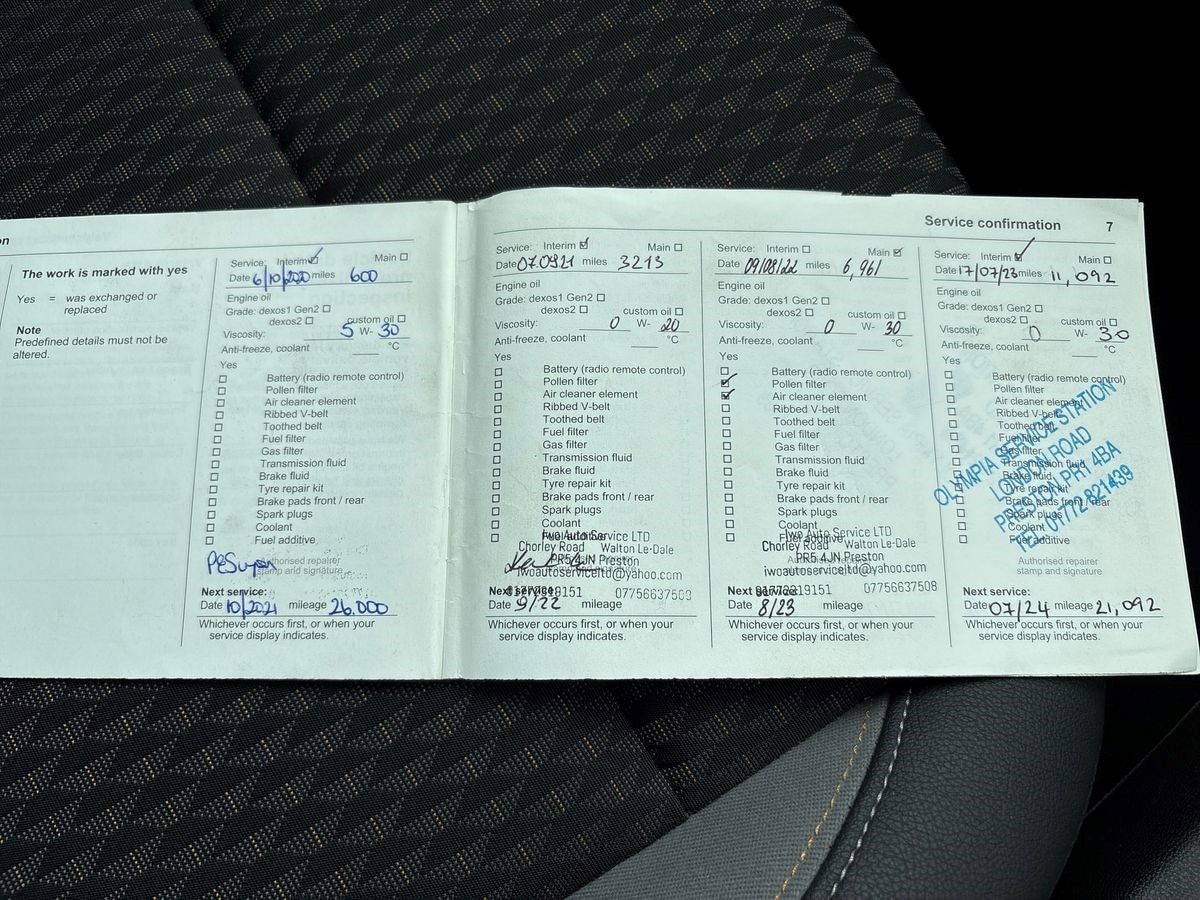 on
The work is marked with yes
Yes = was exchanged or
replaced
Note
Predefined details must not be
altered.
Service: Interim ☑ Main ☐
Date 6/10/2020 miles 600
Engine oil
Grade: dexos1 Gen2 ☐
dexos2 ☐ custom oil ☐
Viscosity: 5 W- 30
Anti-freeze, coolant ____ °C
Yes
☐ Battery (radio remote control)
☐ Pollen filter
☐ Air cleaner element
☐ Ribbed V-belt
☐ Toothed belt
☐ Fuel filter
☐ Gas filter
☐ Transmission fluid
☐ Brake fluid
☐ Tyre repair kit
☐ Brake pads front / rear
☐ Spark plugs
☐ Coolant
☐ Fuel additive
Authorised repairer
stamp and signature
Next service:
Date 10/2021 mileage 26.000
Whichever occurs first, or when your
service display indicates.
Service confirmation 7
Service: Interim ☑ Main ☐
Date 07.0921 miles 3213
Engine oil
Grade: dexos1 Gen2 ☐
dexos2 ☐ custom oil ☐
Viscosity: 0 W- 20
Anti-freeze, coolant ____ °C
Yes
☐ Battery (radio remote control)
☐ Pollen filter
☐ Air cleaner element
☐ Ribbed V-belt
☐ Toothed belt
☐ Fuel filter
☐ Gas filter
☐ Transmission fluid
☐ Brake fluid
☐ Tyre repair kit
☐ Brake pads front / rear
☐ Spark plugs
☐ Coolant
☐ Fuel additive
Iwo Auto Service LTD
Chorley Road Walton Le-Dale
PR5 4JN Preston
iwoautoserviceltd@yahoo.com
07756637508
Next service:
Date 9/22 mileage
Whichever occurs first, or when your
service display indicates.
Service: Interim ☐ Main ☑
Date 09/08/22 miles 6,961
Engine oil
Grade: dexos1 Gen2 ☐
dexos2 ☐ custom oil ☐
Viscosity: 0 W- 30
Anti-freeze, coolant ____ °C
Yes
☐ Battery (radio remote control)
☑ Pollen filter
☑ Air cleaner element
☐ Ribbed V-belt
☐ Toothed belt
☐ Fuel filter
☐ Gas filter
☐ Transmission fluid
☐ Brake fluid
☐ Tyre repair kit
☐ Brake pads front / rear
☐ Spark plugs
☐ Coolant
☐ Fuel additive
Iwo Auto Service LTD
Chorley Road Walton Le-Dale
PR5 4JN Preston
iwoautoserviceltd@yahoo.com
07756637508
Next service:
Date 8/23 mileage
Whichever occurs first, or when your
service display indicates.
Service: Interim ☑ Main ☐
Date 17/07/23 miles 11,092
Engine oil
Grade: dexos1 Gen2 ☐
dexos2 ☐ custom oil ☐
Viscosity: 0 W- 30
Anti-freeze, coolant ____ °C
Yes
☐ Battery (radio remote control)
☐ Pollen filter
☐ Air cleaner element
☐ Ribbed V-belt
☐ Toothed belt
☐ Fuel filter
☐ Gas filter
☐ Transmission fluid
☐ Brake fluid
☐ Tyre repair kit
☐ Brake pads front / rear
☐ Spark plugs
☐ Coolant
☐ Fuel additive
OLYMPIA SERVICE STATION
LONDON ROAD
PRESTON PR1 4BA
TEL 01772 821439
Authorised repairer
stamp and signature
Next service:
Date 07/24 mileage 21,092
Whichever occurs first, or when your
service display indicates.